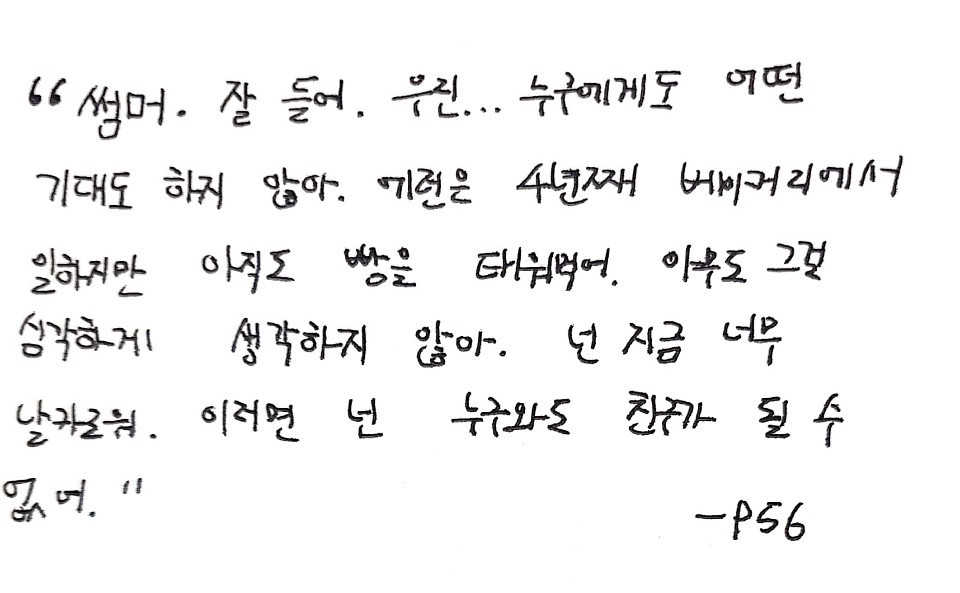 “썸머. 잘 들어. 우린... 누구에게도 어떤
기대도 하지 않아. 에런은 4년째 베이커리에서
일하지만 아직도 빵을 태워먹어. 아무도 그걸
심각하게 생각하지 않아. 넌 지금 너무
날카로워. 이러면 넌 누구와도 친구가 될 수
없어."
-P56